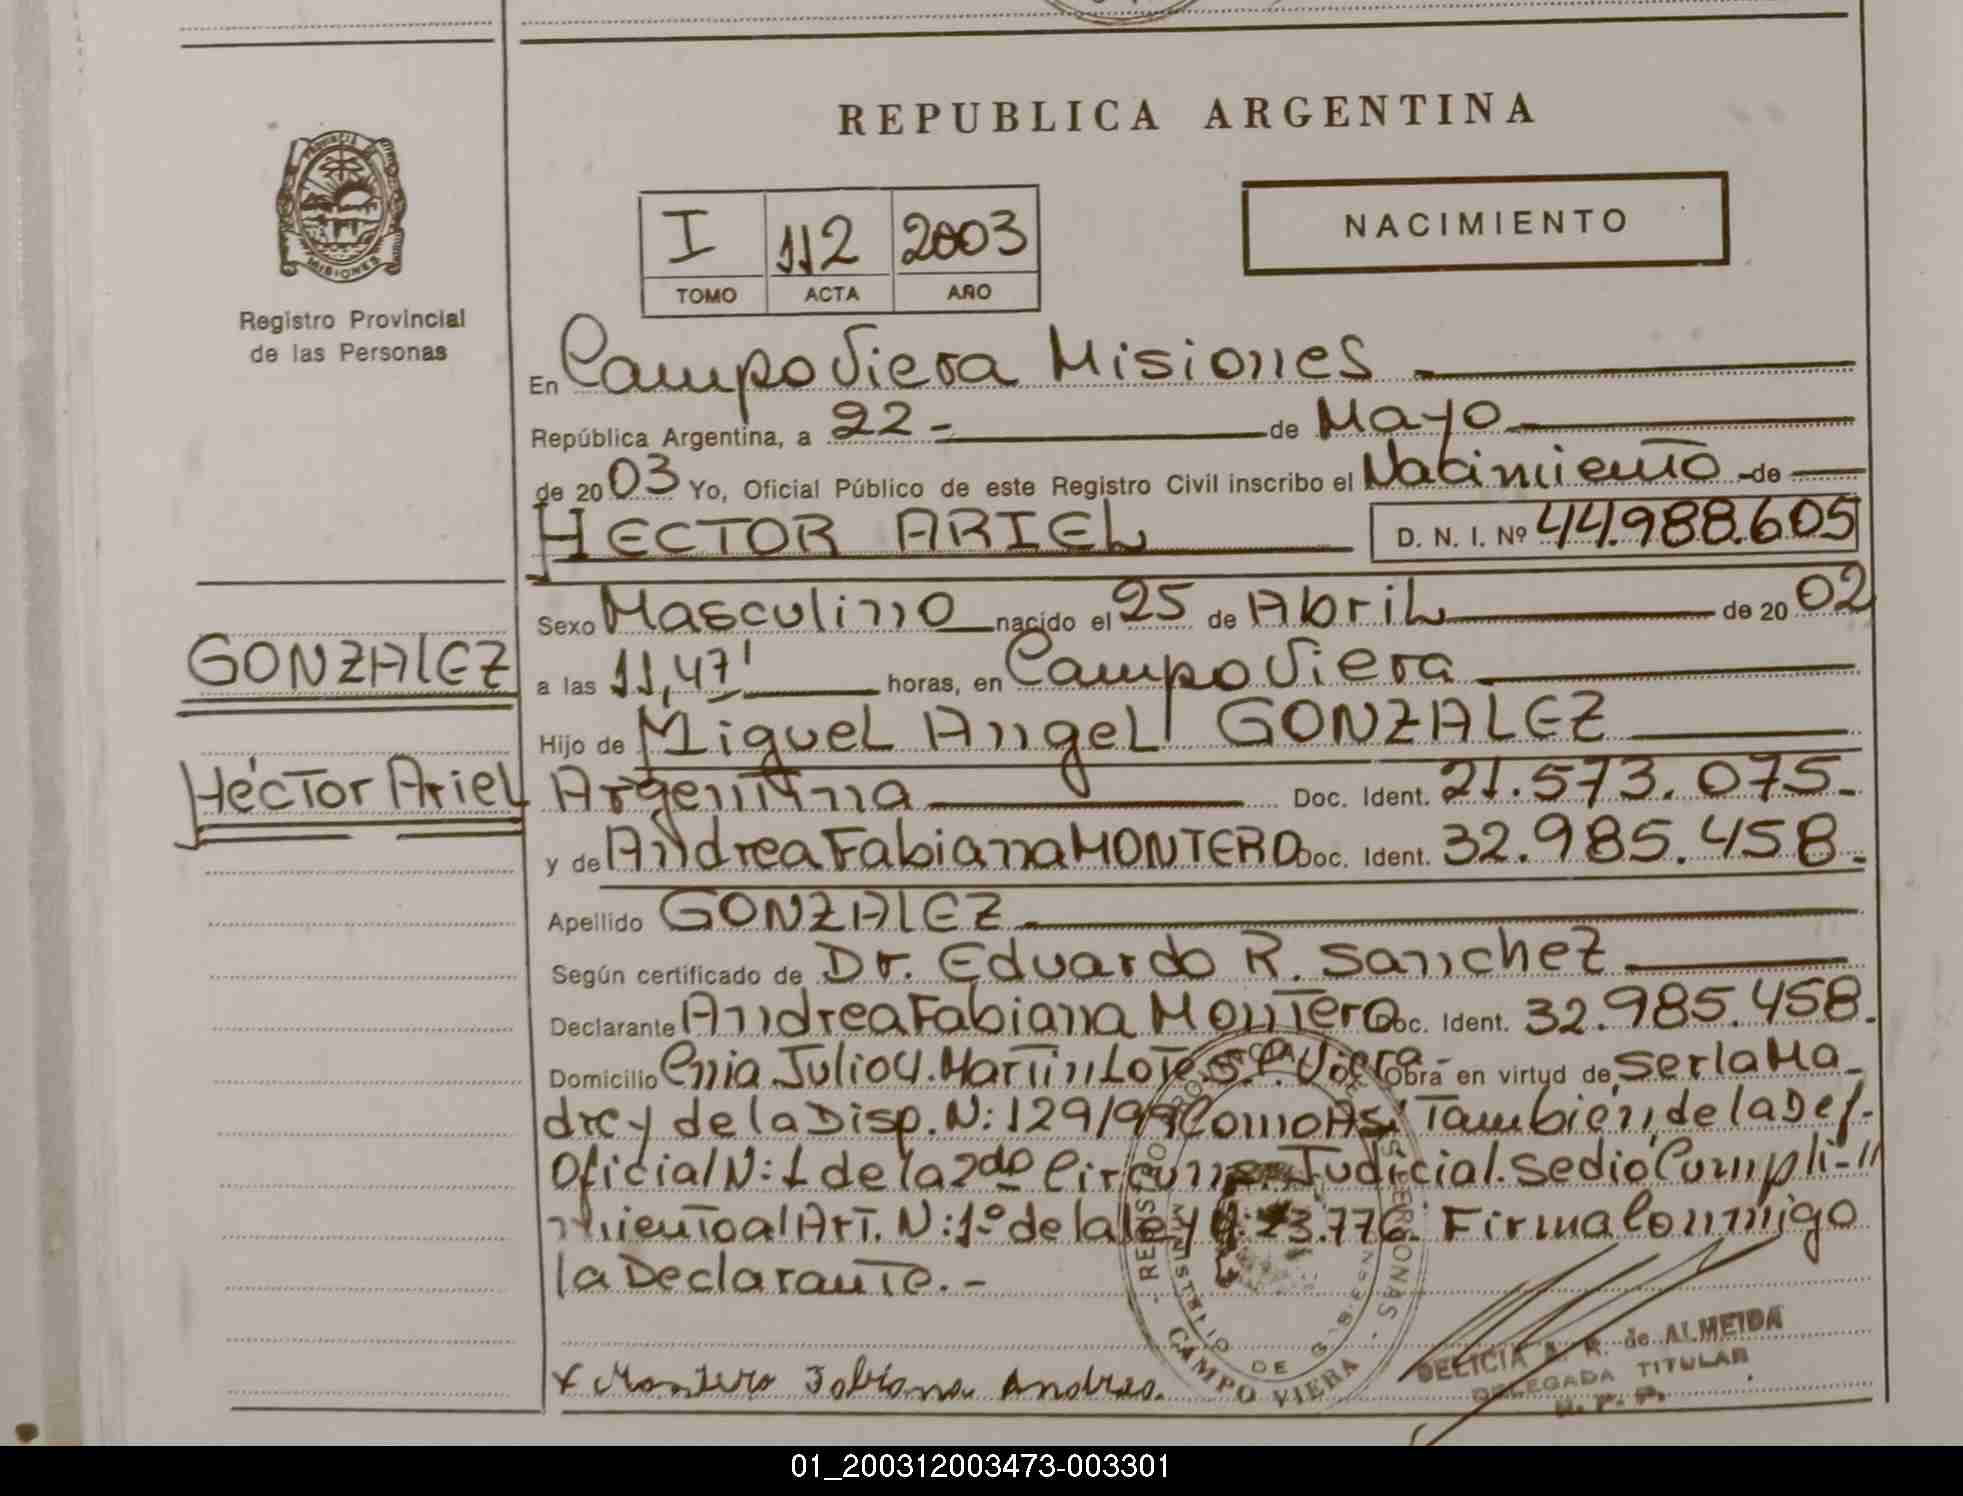 REPUBLICA ARGENTINA
PROVINCIA DE
MISIONES
Registro Provincial
de las Personas
I 112 2003
TOMO ACTA AÑO
NACIMIENTO
En Campo Viera Misiones
República Argentina, a 22- de Mayo
de 2003 Yo, Oficial Público de este Registro Civil inscribo el Nacimiento de
HECTOR ARIEL D. N. I. Nº 44.988.605
Sexo Masculino nacido el 25 de Abril de 2002
GONZALEZ
a las 11,47' horas, en Campo Viera
Hijo de Miguel Angel GONZALEZ
Héctor Ariel
Argentina Doc. Ident. 21.573.075.-
y de Andrea Fabiana MONTERO Doc. Ident. 32.985.458.-
Apellido GONZALEZ
Según certificado de Dr. Eduardo R. Sanchez
Declarante Andrea Fabiana Montero Doc. Ident. 32.985.458.
Domicilio Cnia Julio U. Martin Lote.s. C. Viera- Obra en virtud de ser la Ma-
dre y de la Disp. N: 129/99 Como Asi También, de la Def.
Oficial N: 1 de la 2do Circunp. Judicial. Se dio Cumpli-"
miento al Art. N: 1º de la ley N: 23.776. Firma Conmigo
la Declarante.-
x Montero Fabiana Andrea.
REGISTRO PROVINCIAL DE LAS PERSONAS
MINISTERIO DE GOBIERNO
CAMPO VIERA
DELICIA A. R. de ALMEIDA
DELEGADA TITULAR
R. P. P.
01_200312003473-003301